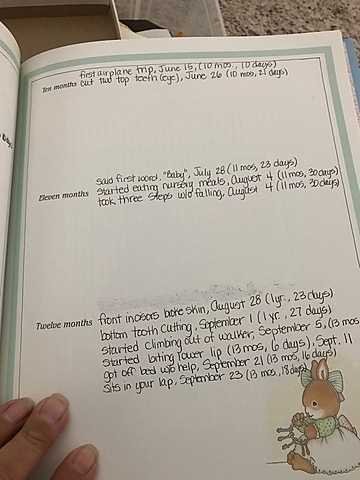 first airplane trip, June 15, (10 mos., 10 days)
Ten months cut two top teeth (eye), June 26 (10 mos, 21 days)
said first word. "Baby", July 28 (11 mos, 23 days)
Eleven months started eating nursery meals, August 4 (11 mos, 30 days)
took three steps w/o falling, August 4 (11 mos, 30 days)
front incisors broke skin, August 28 (1 yr., 23 days)
Twelve months bottom tooth cutting, September 1 (1 yr., 27 days)
started climbing out of walker, September 5, (13 mos
started biting lower lip (13 mos, 6 days), Sept. 11
got off bed w/o help, September 21 (13 mos, 16 days)
sits in your lap, September 23 (13 mos, 18 days)